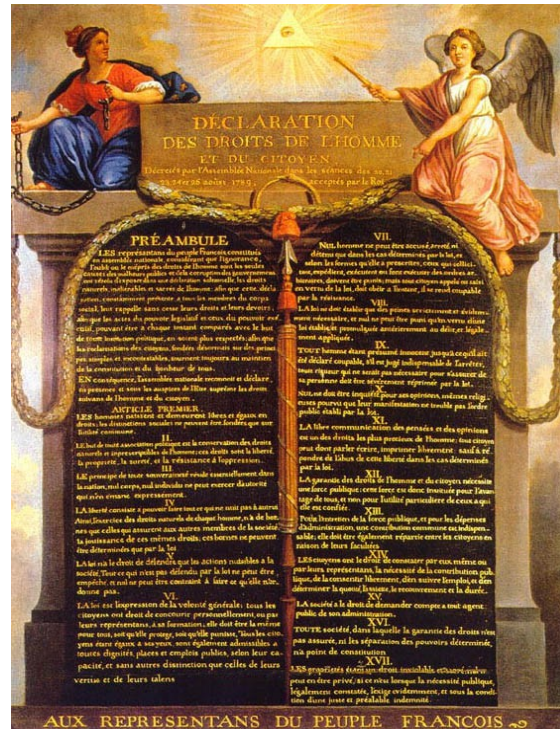 DÉCLARATION
DES DROITS DE L'HOMME
ET DU CITOYEN,
Décretés par l'Assemblée Nationale dans les séances des 20, 21
23, 24 et 26 août 1789, acceptés par le Roi
PRÉAMBULE
LES représentans du peuple François constitués
en assemblée nationale, considérant que l'ignorance,
l'oubli ou le mépris des droits de l'homme sont les seules
causes des malheurs publics et de la corruption des gouvernemens
ont résolu d'exposer dans une déclaration solemnelle, les droits
naturels, inaliénables et sacrés de l'homme: afin que cette décla-
ration, constamment présente a tous les membres du corps
social, leur rappelle sans cesse leurs droits et leurs devoirs;
afin que les actes du pouvoir législatif et ceux du pouvoir exé-
cutif, pouvant être a chaque instant comparés avec le but
de toute institution politique, en soient plus respectés; afin que
les réclamations des citoyens, fondées désormais sur des princi-
pes simples et incontestables, tournent toujours au maintien
de la constitution et du bonheur de tous.
EN conséquence, l'assemblée nationale reconnoit et déclare,
en présence et sous les auspices de l'Etre suprême les droits
suivans de l'homme et du citoyen.
ARTICLE PREMIER
LES hommes naissent et demeurent libres et égaux en
droits; les distinctions sociales ne peuvent être fondées que sur
l'utilité commune.
II.
LE but de toute association politique est la conservation des droits
naturels et imprescriptibles de l'homme; ces droits sont la liberté,
la propriété, la sureté, et la résistance à l'oppression.
III.
LE principe de toute souveraineté réside essentiellement dans
la nation, nul corps, nul individu ne peut exercer d'autorité
qui n'en émane expressément.
IV
LA liberté consiste à pouvoir faire tout ce qui ne nuit pas à autrui
Ainsi, l'exercice des droits naturels de chaque homme, n'a de bor-
nes que celles qui assurent aux autres membres de la société
la jouissance de ces mêmes droits; ces bornes ne peuvent
être déterminées que par la loi
V.
LA loi n'a le droit de défendre que les actions nuisibles a la
société. Tout ce qui n'est pas défendu par la loi ne peut être
empêché, et nul ne peut être contraint à faire ce qu'elle n'or-
donne pas.
VI.
LA loi est l'expression de la volonté générale; tous les
citoyens ont droit de concourir personnellement, ou par
leurs représentans, à sa formation; elle doit être la même
pour tous, soit qu'elle protege, soit qu'elle punisse. Tous les cito-
yens étant égaux à ses yeux, sont également admissibles a
toutes dignités, places et emplois publics, selon leur ca-
pacité, et sans autres distinction que celles de leurs
vertus et de leurs talens
VII.
NUL homme ne peut être accusé, arreté, ni
détenu que dans les cas déterminés par la loi, et
selon les formes qu'elle a prescrites, ceux qui sollici-
tent, expédient, exécutent ou font exécuter des ordres ar-
bitraires, doivent être punis; mais tout citoyen appelé ou saisi
en vertu de la loi, doit obéir a l'instant, il se rend coupable
par la résistance.
VIII.
LA loi ne doit établir que des peines strictement et évidem-
ment nécessaires, et nul ne peut être puni qu'en vertu d'une
loi établie et promulguée antérieurement au délit, et légale-
ment appliquée.
IX.
TOUT homme étant présumé innocent jusqu'à ce qu'il ait
été déclaré coupable, s'il est jugé indispensable de l'arrêter,
toute rigueur qui ne serait pas nécessaire pour s'assurer de
sa personne doit être sévèrement réprimée par la loi.
X.
NUL ne doit être inquiété pour ses opinions, mêmes religi-
euses pourvu que leur manifestation ne trouble pas l'ordre
public établi par la loi.
XI.
LA libre communication des pensées et des opinions
est un des droits les plus précieux de l'homme; tout citoyen
peut donc parler écrire, imprimer librement: sauf à ré-
pondre de l'abus de cette liberté dans les cas déterminés
par la loi.
XII.
LA garantie des droits de l'homme et du citoyen nécessite
une force publique; cette force est donc instituée pour l'avan-
tage de tous, et non pour l'utilité particuliere de ceux a qui
elle est confiée.
XIII.
Pour l'entretien de la force publique, et pour les dépenses
d'administration, une contribution commune est indispen-
sable; elle doit être également répartie entre les citoyens en
raison de leurs facultées
XIV.
LES citoyens ont le droit de constater par eux même ou
par leurs représentans, la nécessité de la contribution pub-
lique, de la consentir librement, d'en suivre l'emploi, et d'en
déterminer la quotité, l'assiette, le recouvrement et la durée.
XV.
LA société a le droit de demander compte a tout agent
public de son administration.
XVI.
TOUTE société, dans laquelle la garantie des droits n'est
pas assurée, ni les séparation des pouvoirs déterminée,
n'a point de constitution
XVII.
LES propriétés étant un droit inviolable et sacré, nul ne
peut en être privé, si ce n'est lorsque la nécessité publique,
légalement constatée, l'exige evidemment, et sous la condi-
tion d'une juste et préalable indemnité.
AUX REPRESENTANS DU PEUPLE FRANCOIS